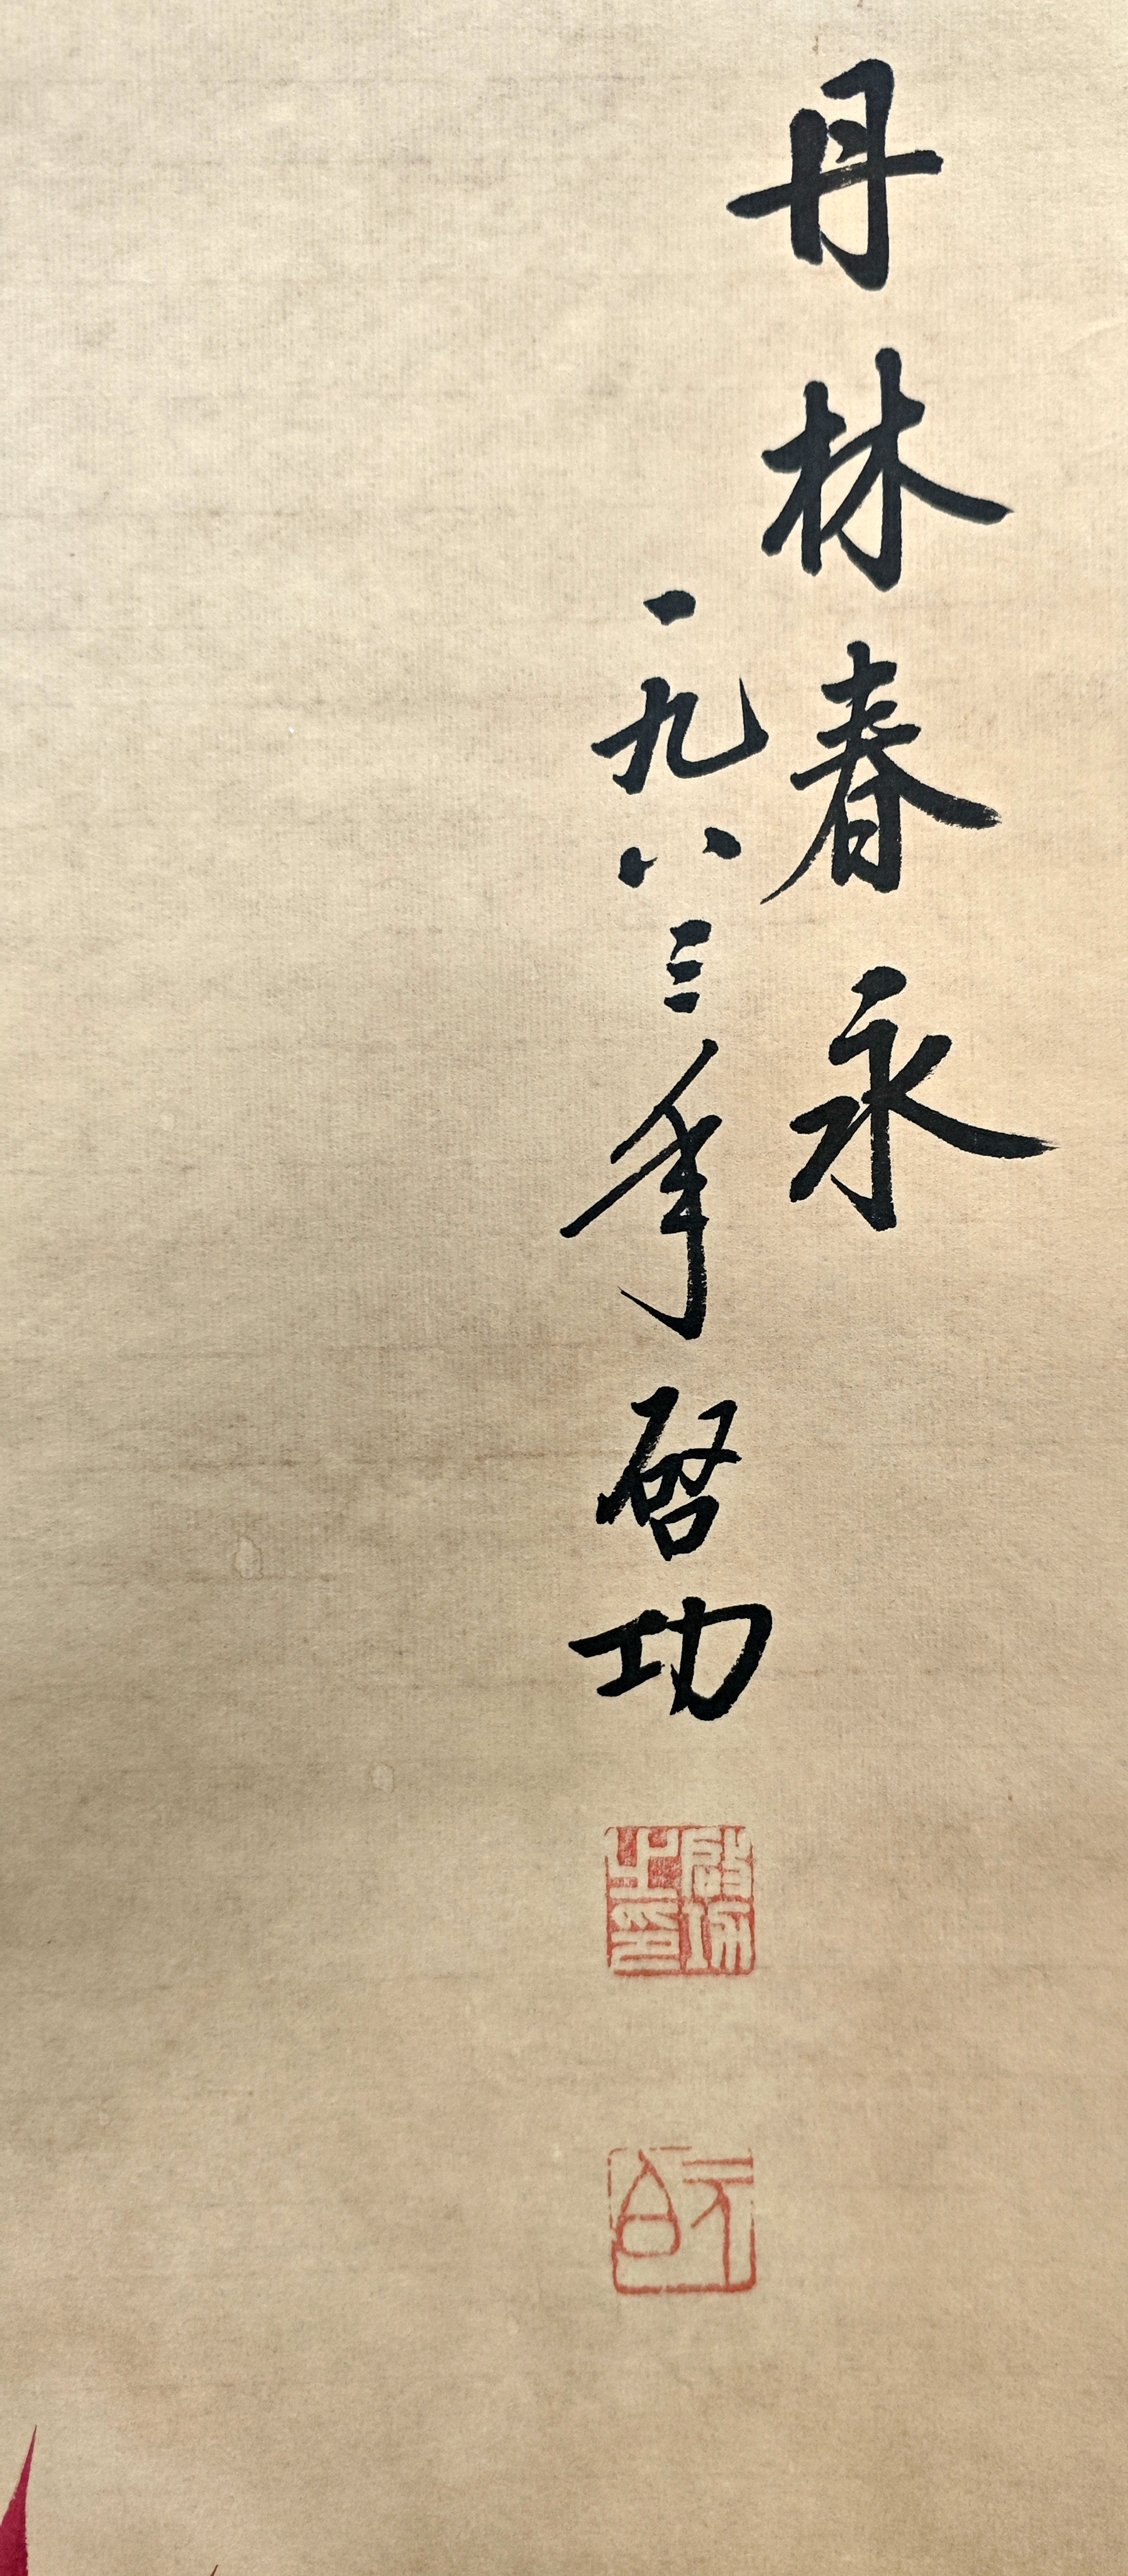 丹林春永
一九八三年 啓功
啟功之印
元白